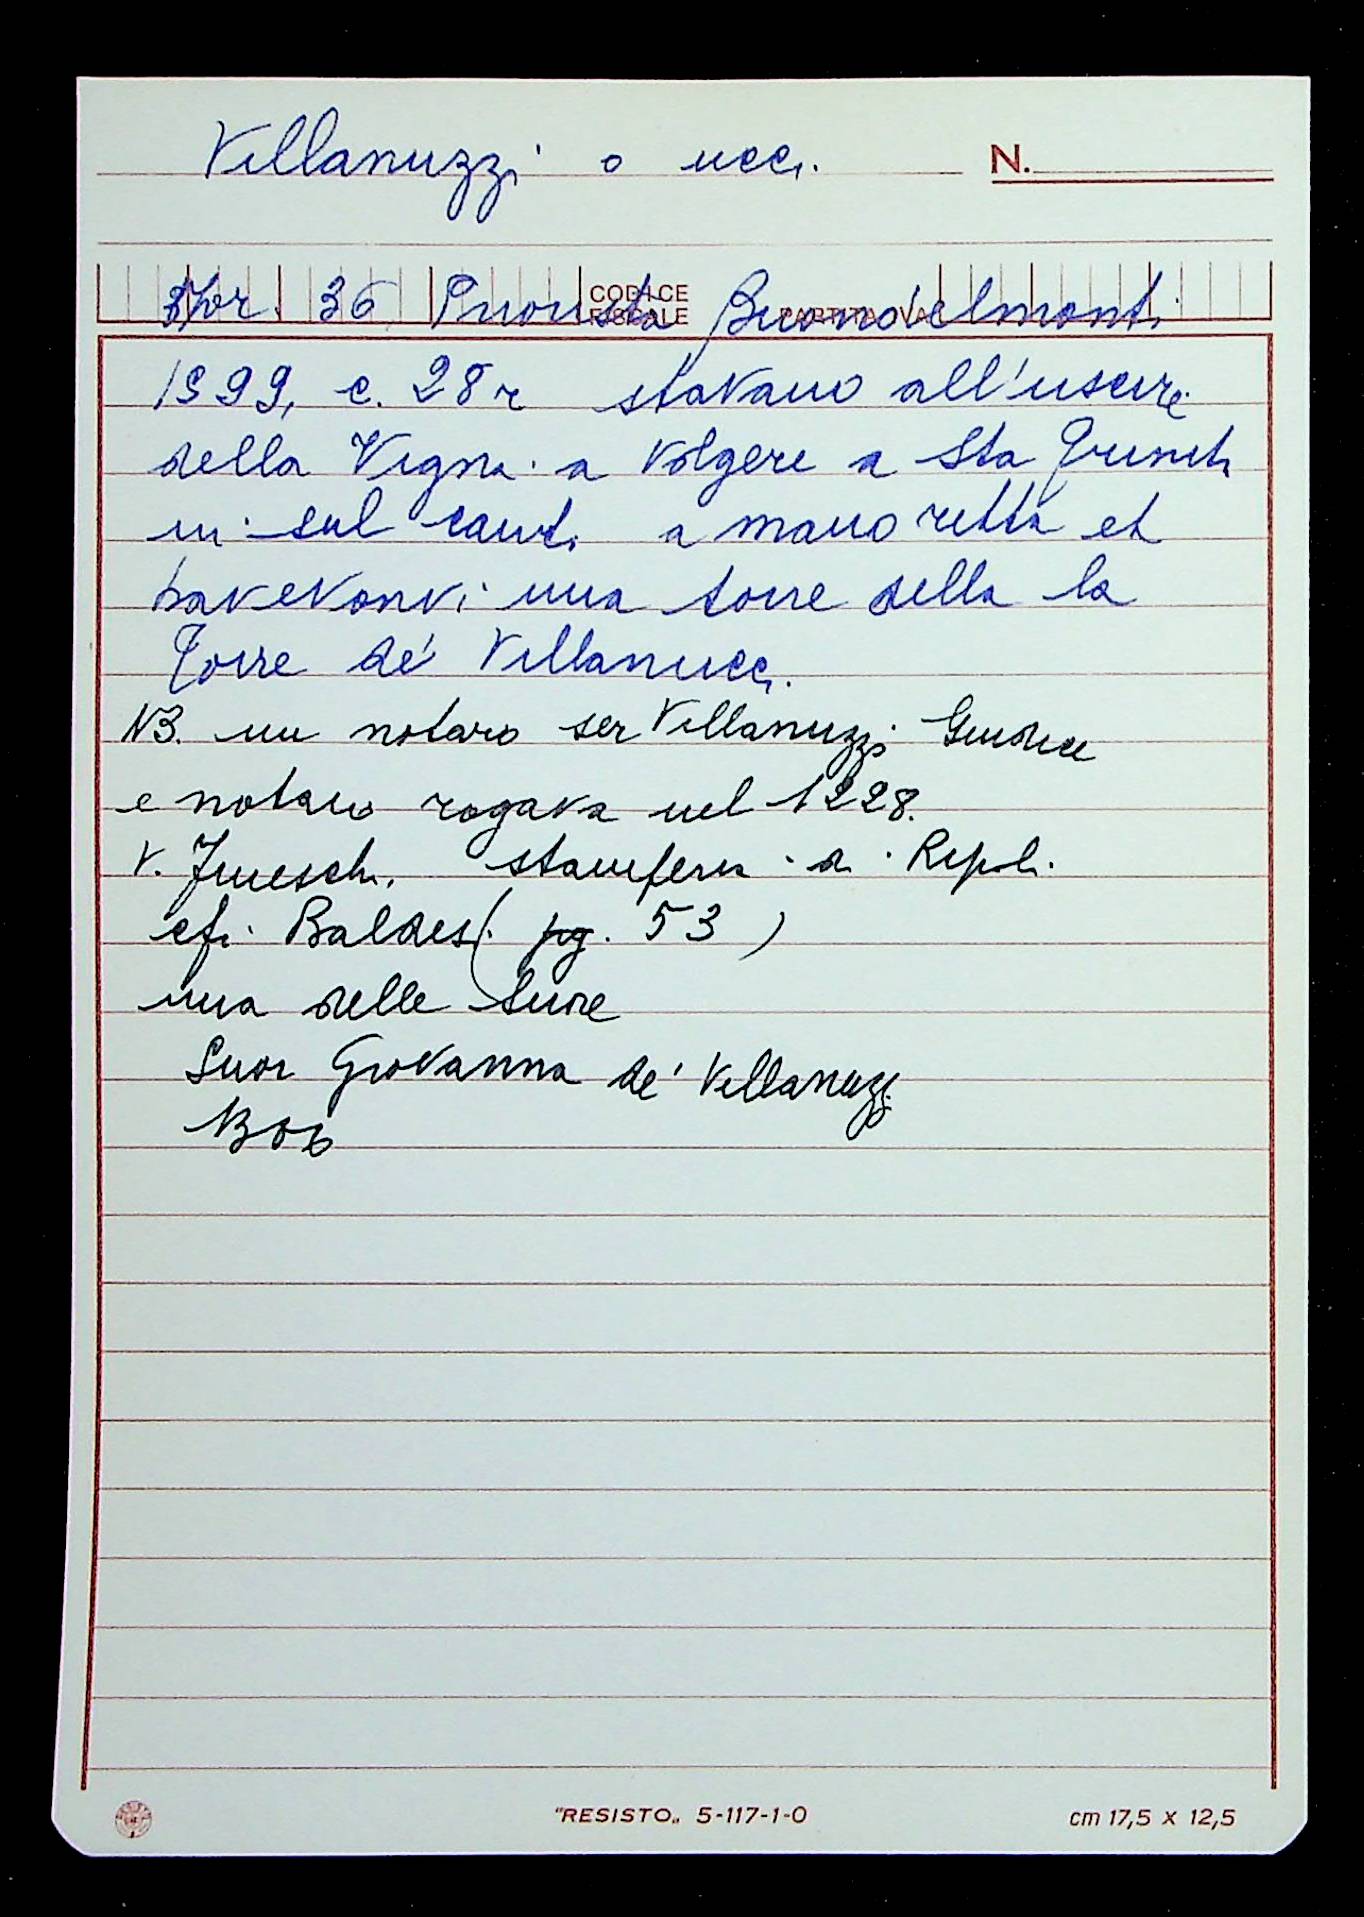 Villanuzzi o ucci. N.
36 Priorista Buondelmonti
CODICE FISCALE PARTITA IVA
1599, c. 28r stavano all'uscire
della Vigna a volgere a Sta Trinita
in sul canto a mano retta et
havevonvi una torre della la
Torre de' Villanucci.
NB. un notaro ser Villanuzzi Giudice
e notaro rogava nel 1228.
V. a Ripoli.
cfr. Baldesi pg. 53 )
una delle Suore
Suor Giovanna de' Villanuzzi
"RESISTO„ 5-117-1-0 cm 17,5 x 12,5